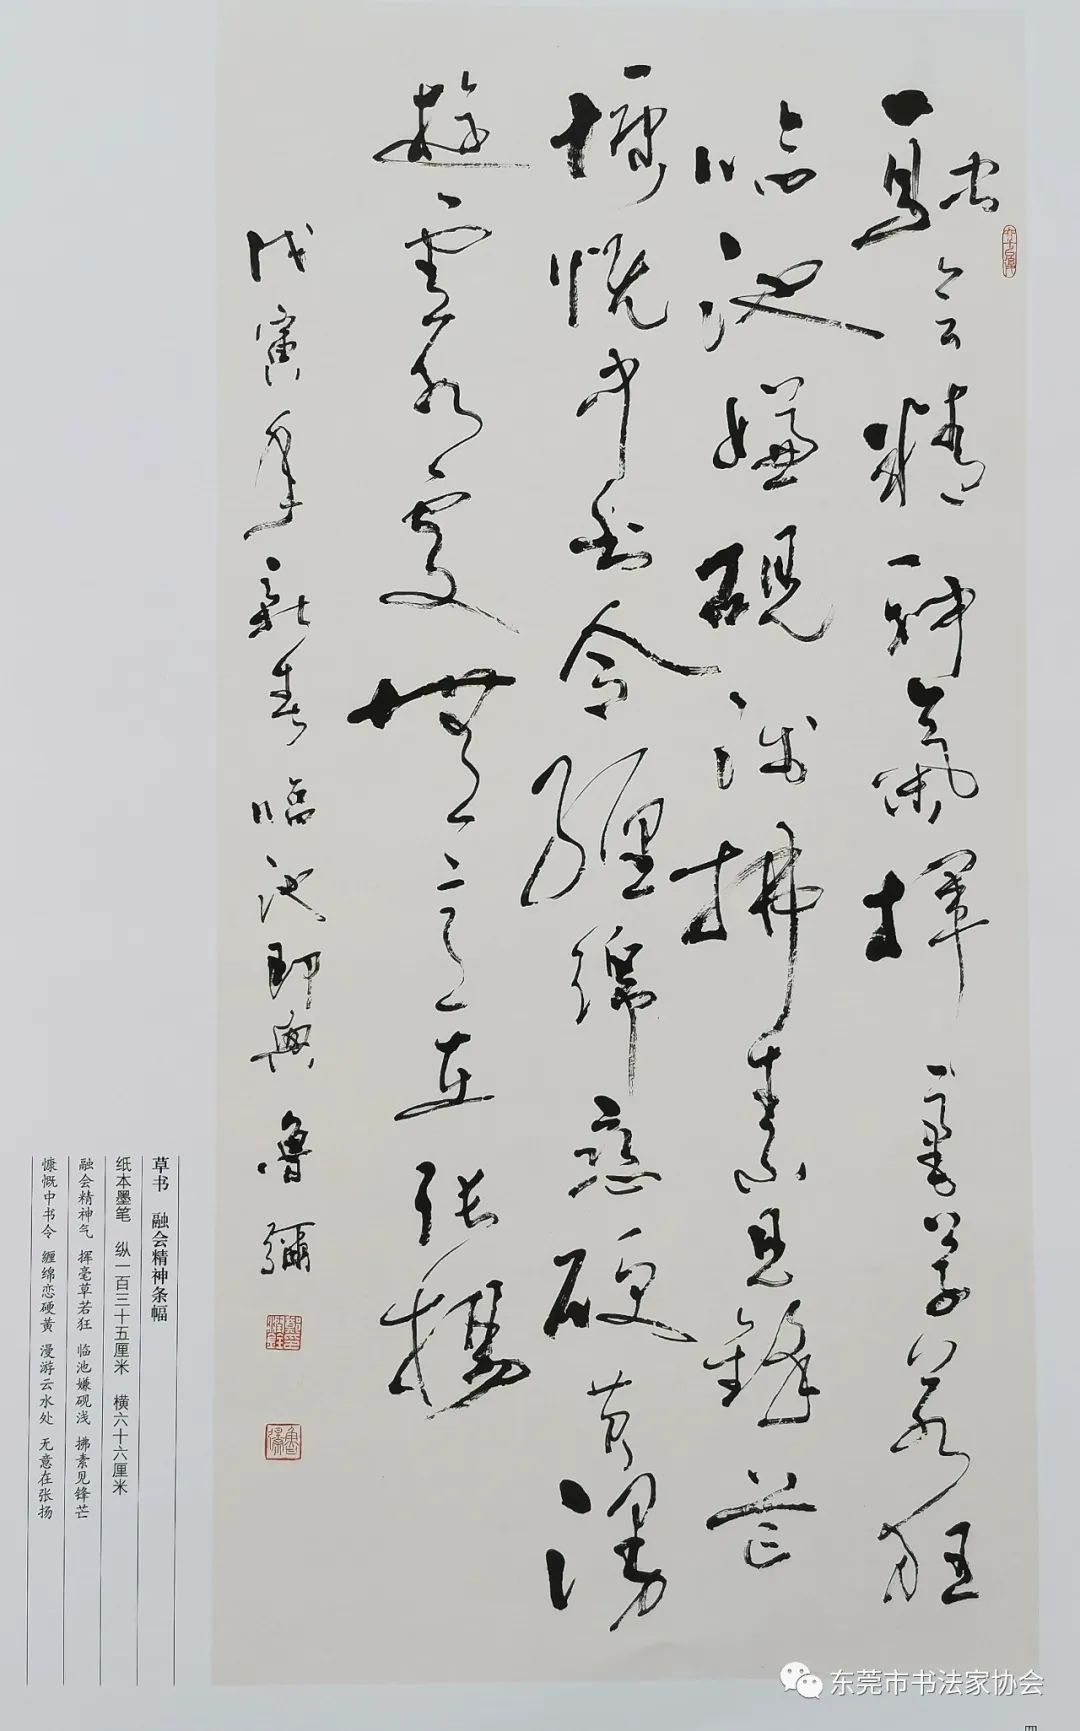 融会精神气揮毫草若狂
临池嫌硯浅拂素見鋒芒
慷慨中书令纏綿恋硬黄漫
遊雲水處無意在張揚
戊寅年新春临池即興 魯彌
草书 融会精神条幅
纸本墨笔 纵一百三十五厘米 横六十六厘米
融会精神气 挥毫草若狂 临池嫌砚浅 拂素见锋芒
慷慨中书令 缠绵恋硬黄 漫游云水处 无意在张扬
东莞市书法家协会
四